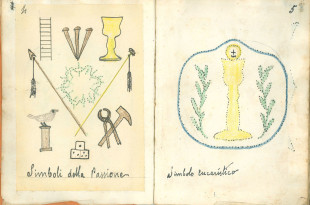 4
Simboli della Passione
5
Simbolo eucaristico